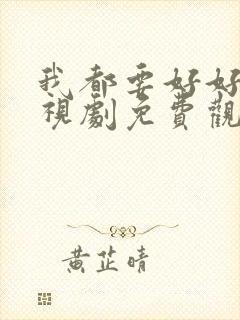 我都要好好
視劇免費觀
黃芷晴